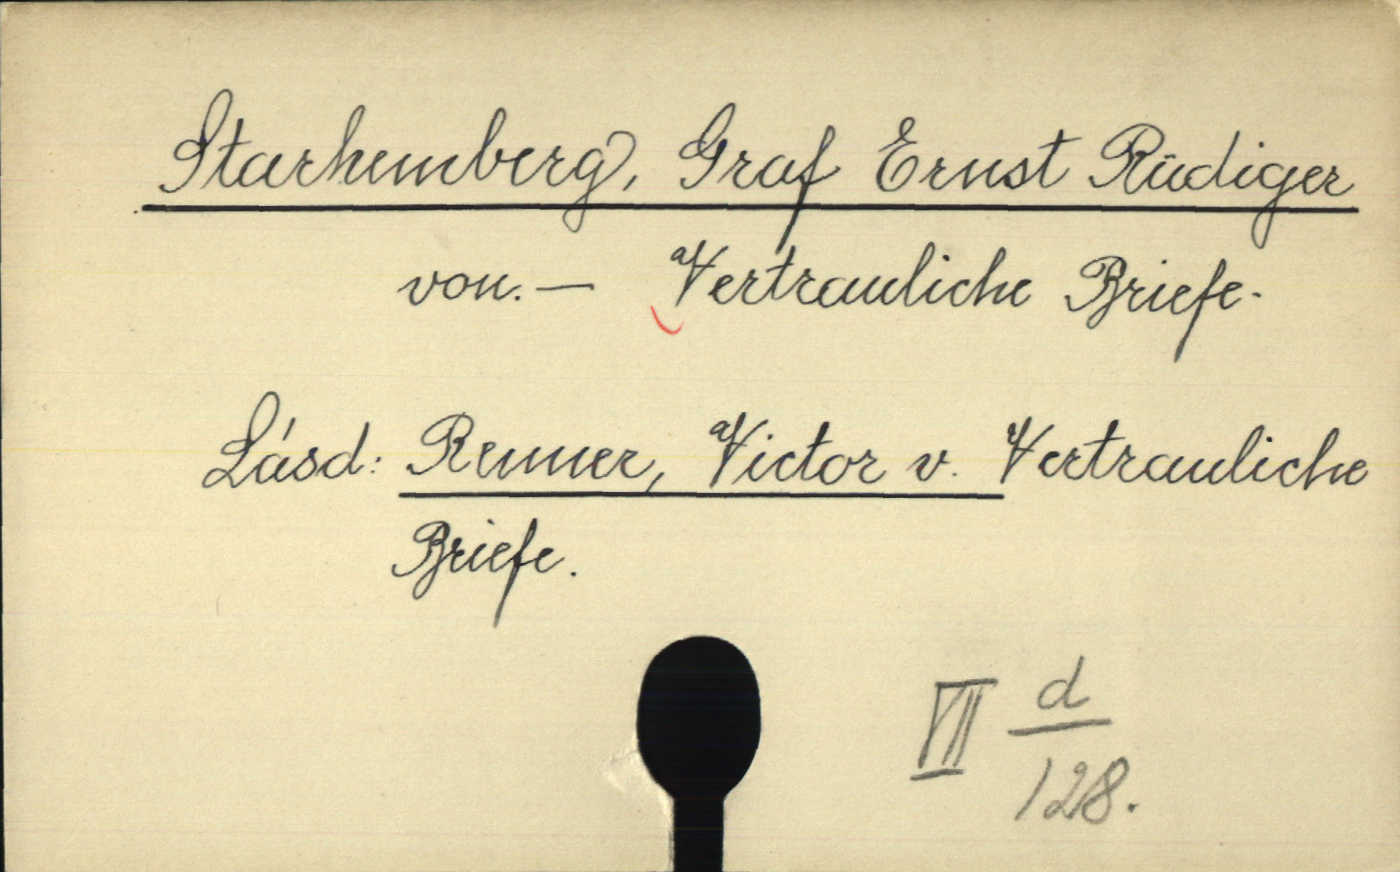 Starhemberg, Graf Ernst Rüdiger
von. — Vertrauliche Briefe.
Lásd: Renner, Victor v. Vertrauliche
Briefe.
VII d
128.